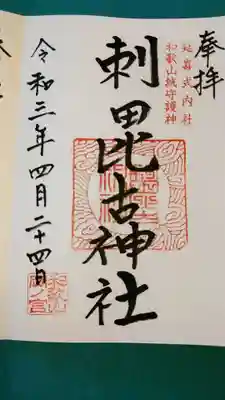 奉拝
延喜式内社
和歌山城守護神
刺田毘古神社
令和三年四月二十四日